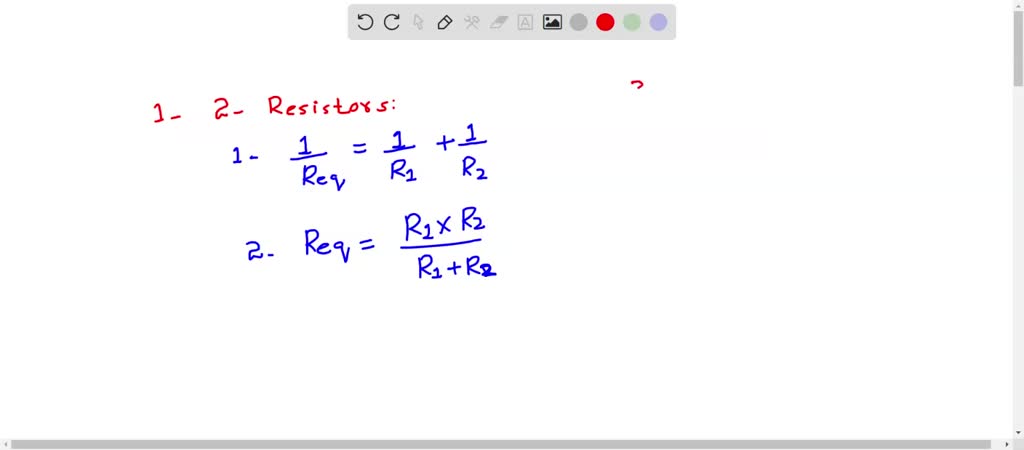 1- 2- Resistors:
1- 1/Req = 1/R1 + 1/R2
2- Req = R1 x R2 / R1 + R2